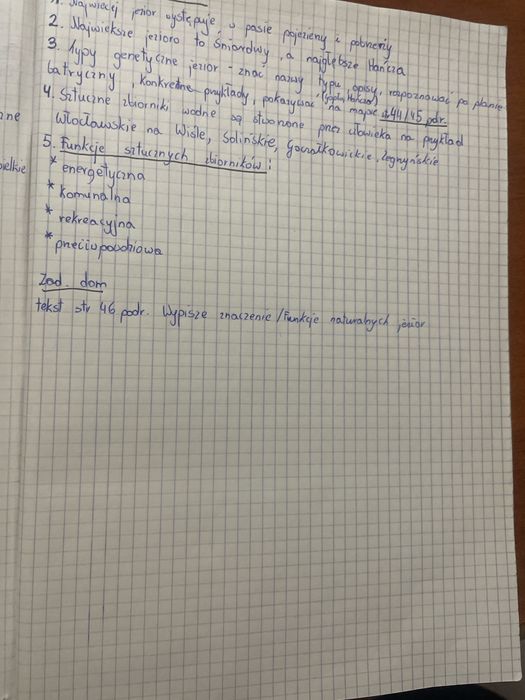 1. Najwięcej jezior występuje w pasie pojezierzy i pobrzeży
2. Największe jezioro to Śniardwy, a najgłębsze Hańcza
3. Typy genetyczne jezior - znać nazwy typu, opisy, rozpoznawać po planie
batryczny, konkretne przykłady, pokazywać na mapie str 44/45 pdr.
(głębia Hańcza)
4. Sztuczne zbiorniki wodne są stworzone przez człowieka na przykład
Włocławskie na Wiśle, Solińskie, Goczałkowickie, Zegrzyńskie
5. Funkcje sztucznych zbiorników:
* energetyczna
* komunalna
* rekreacyjna
* przeciwpowodziowa
Zad. dom
tekst str 46 podr. Wypisze znaczenie/funkcje naturalnych jezior
zne
ielkie